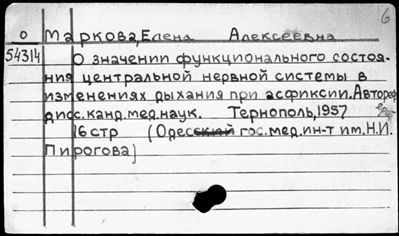 6
О Маркова, Елена Алексеевна
54314 О значении функционального состоя-
ния центральной нервной системы в
изменениях дыхания при асфиксии. Автореф.
дисс. канд. мед. наук. Тернополь, 1957
16 стр (Одесский гос. мед. ин-т им. Н.И.
Пирогова)